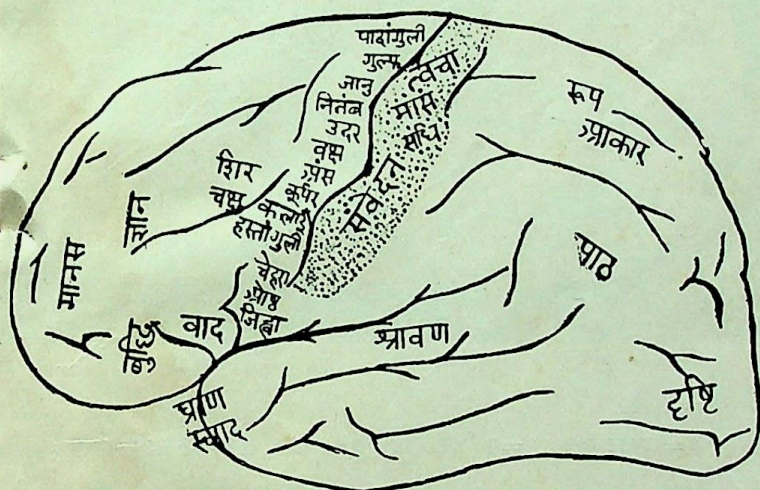 पादांगुली
गुल्फ
जानु
नितंब
उदर
वक्ष
अंस
कूर्पर
कलाई
हस्तांगुली
चेहरा
ओष्ठ
जिह्वा
त्वचा
मांस
संधि
संवेदन
रूप
आकार
शिर
चक्षु
ज्ञान
मानस
बुद्धि
वाद
श्रावण
पाठ
दृष्टि
घ्राण
स्वाद